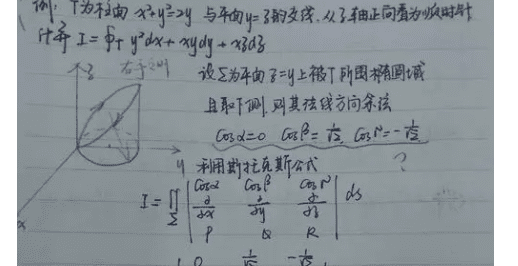 例: Γ为柱面 x²+y²=2y 与平面y=z的交线,从z轴正向看为顺时针
计算 I=∮Γ y²dx+xydy+xzdz
z 右手法则
设Σ为平面z=y上被Γ所围椭圆域
且取下侧,则其法线方向余弦
cosα=0 cosβ=1/√2, cosγ=-1/√2
y 利用斯托克斯公式 ?
x
I=∬Σ | cosα cosβ cosγ | ds
∂/∂x ∂/∂y ∂/∂z
P Q R
0 1/√2 -1/√2